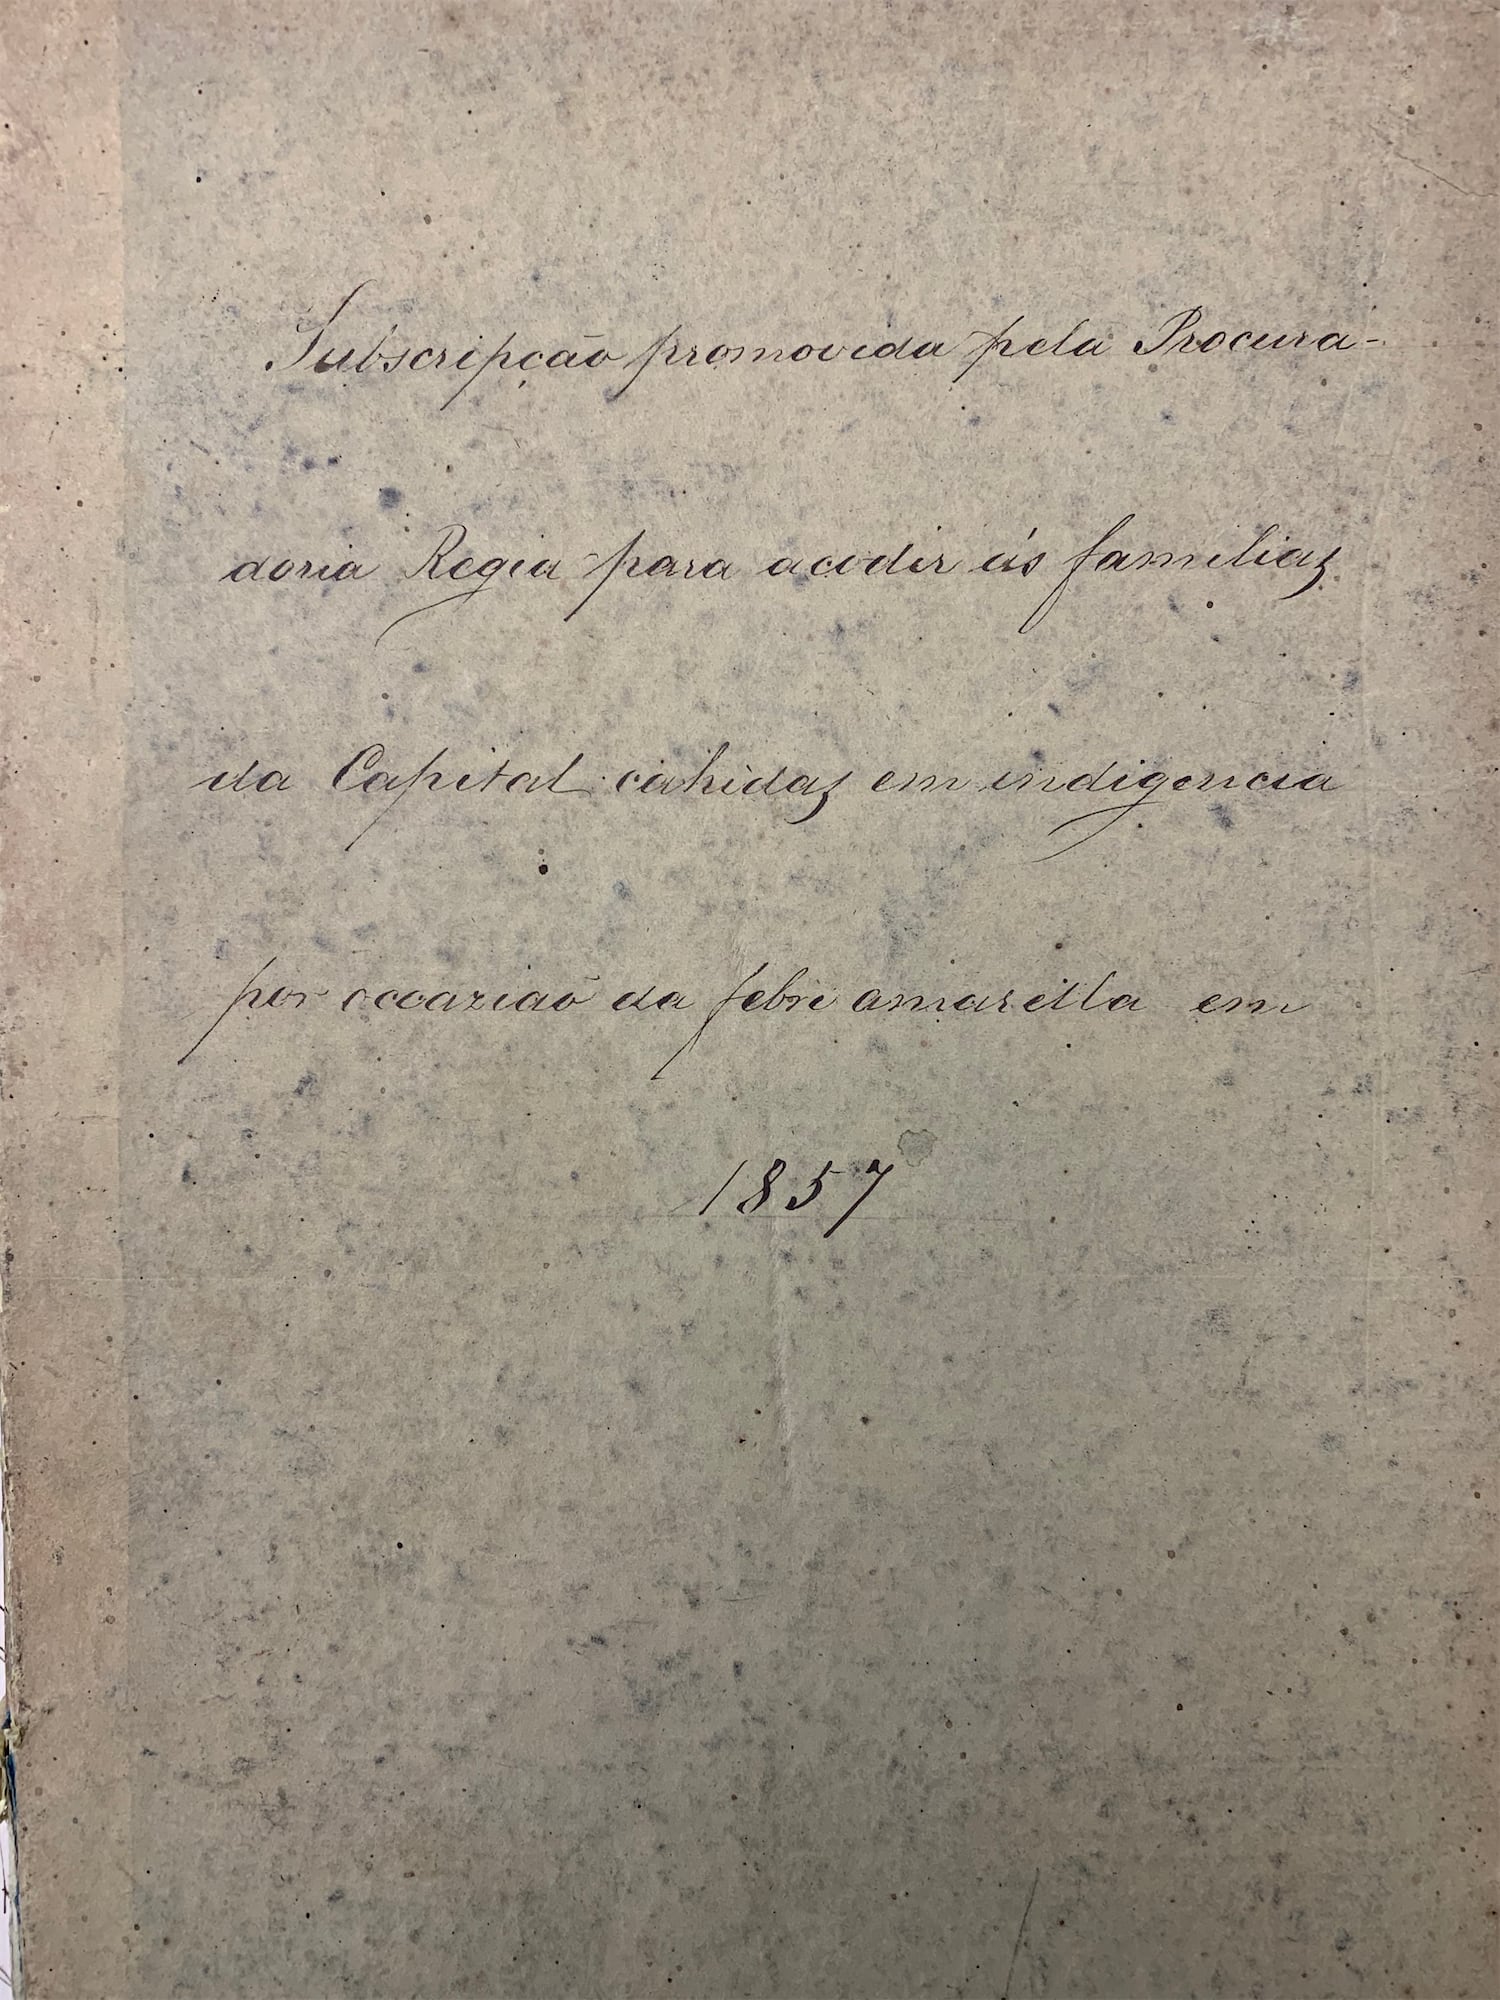 Subscripção promovida pela Procura-
doria Regia para acodir ás familias
da Capital cahidas em indigencia
por occazião da febre amarella em
1857